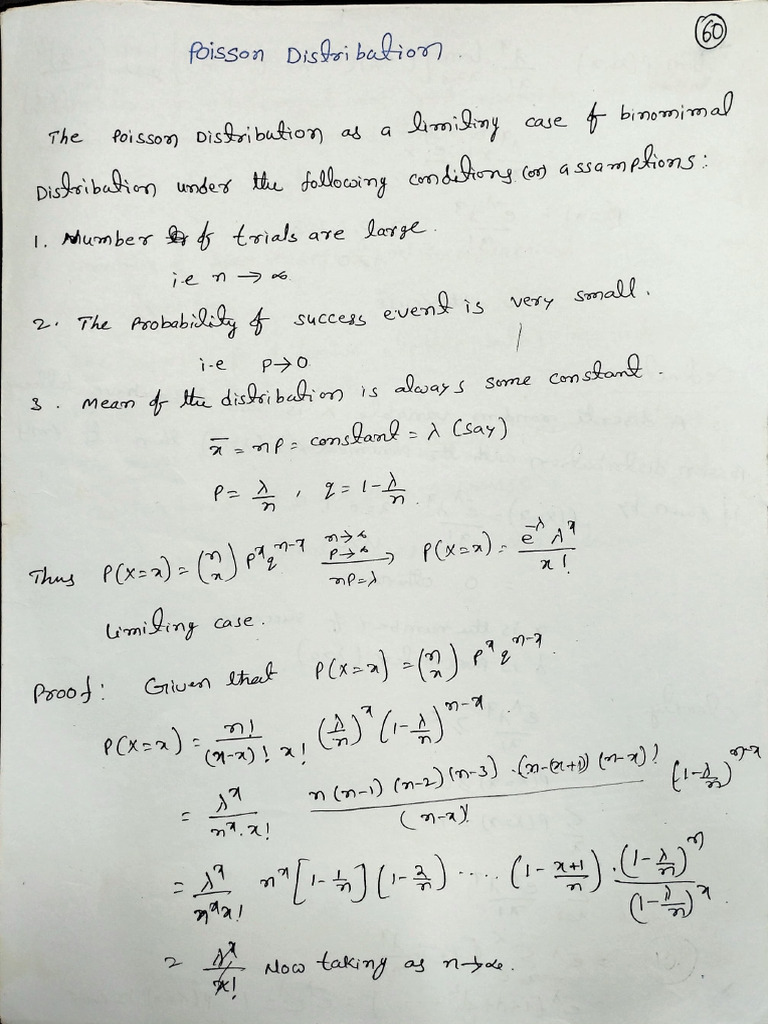 60
Poisson Distribution.
The Poisson Distribution as a limiting case of binomimal
Distribution under the following conditions (or) assamptions:
1. Number of trials are large.
i.e n → ∞
2. The Probability of success event is very small.
i.e P→0
3. Mean of the distribution is always some constant.
x̄ = np = constant = λ (say)
P = λ/n , q = 1-λ/n.
Thus P(X=x) = (n x) p^x q^(n-x) n→∞ P→∞ np=λ → P(X=x) = e^-λ λ^x / x!
Limiting case.
Proof: Given that P(X=x) = (n x) p^x q^(n-x).
P(X=x) = n! / (n-x)! x! (λ/n)^x (1-λ/n)^(n-x)
= λ^x / n^x. x! n(n-1)(n-2)(n-3) .(n-(x+1)) (n-x)! / (n-x)! (1-λ/n)^(n-x)
= λ^x / n^x x! n^x [1-1/n] (1-2/n) ..... (1-x+1/n) . (1-λ/n)^n / (1-λ/n)^x
= λ^x / x! Now taking as n→∞.